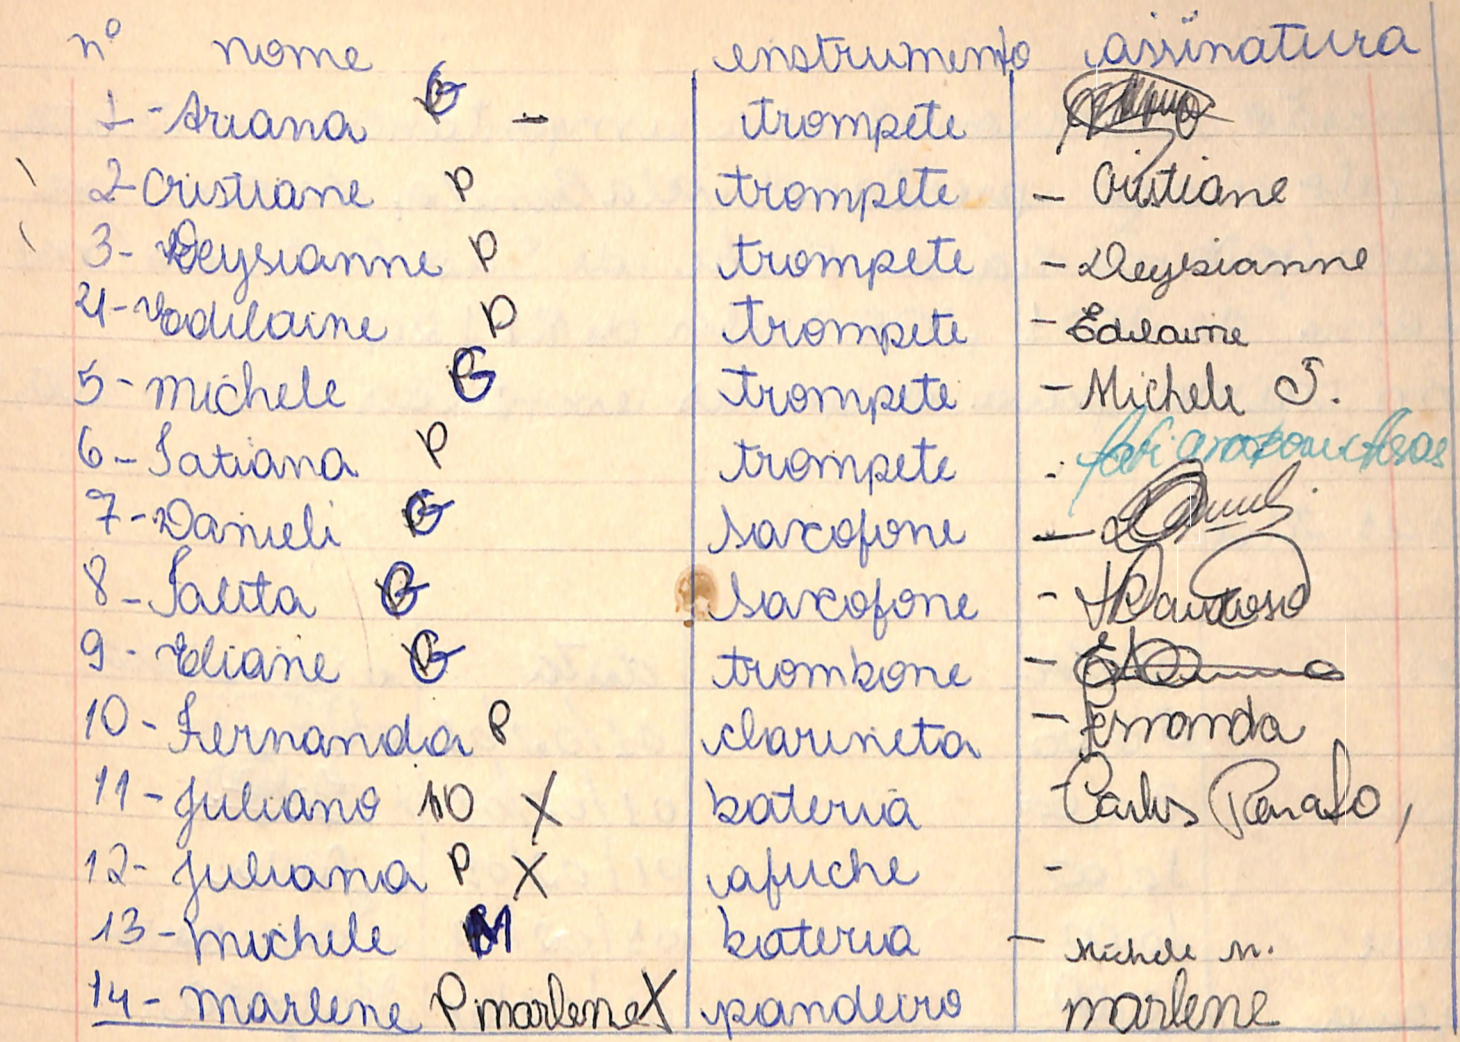 nº nome enstrumento assinatura
1 - Ariana G - trompete
2 - Cristiane P trompete - Cristiane
3 - Deysianne P trompete - Deysianne
4 - Edilaine P trompete - Edilaine
5 - Michele G trompete - Michele S.
6 - Tatiana P trompete -
7 - Danieli G saxofone -
8 - Talita G saxofone -
9 - Eliane G trombone -
10 - Fernanda P clarineta - Fernanda
11 - Juliano 10 X bateria - Carlos Renato,
12 - Juliana P X afuche -
13 - Michele M bateria - Michele M.
14 - Marlene P marlene X pandeiro marlene